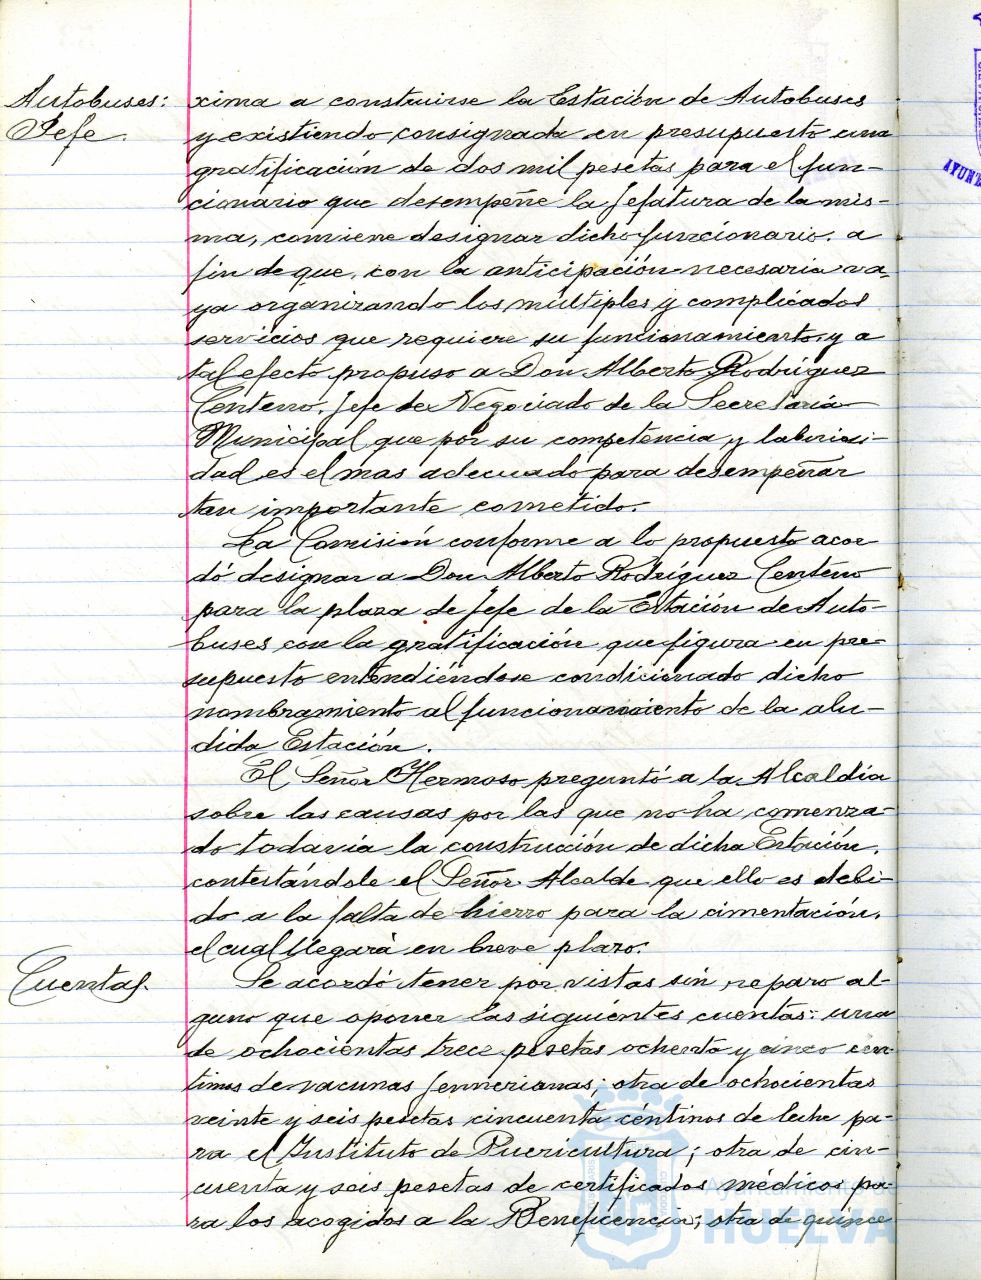 Autobuses:
Jefe.
xima a construirse la Estación de Autobuses
y existiendo consignada en presupuesto una
gratificación de dos mil pesetas para el fun-
cionario que desempeñe la Jefatura de la mis-
ma, conviene designar dicho funcionario. a
fin de que, con la anticipación necesaria va-
ya organizando los múltiples y complicados
servicios que requiere su funcionamiento, y a
tal efecto propuso a Don Alberto Rodríguez
Centeno, Jefe de Negociado de la Secretaría
Municipal, que por su competencia y laboriosi-
dad es el mas adecuado para desempeñar
tan importante cometido.
La Comisión conforme a lo propuesto acor
dó designar a Don Alberto Rodríguez Centeno
para la plaza de Jefe de la Estación de Auto-
buses con la gratificación que figura en pre-
supuesto entendiéndose condicionado dicho
nombramiento al funcionamiento de la alu-
dida Estación.
El Señor Hermoso preguntó a la Alcaldía
sobre las causas por las que no ha comenza-
do todavía la construcción de dicha Estación,
contestándole el Señor Alcalde que ello es debi-
do a la falta de hierro para la cimentación,
el cual llegará en breve plazo.
Cuentas.
Se acordó tener por vistas sin reparo al-
guno que oponer las siguientes cuentas: una
de ochocientas trece pesetas ochenta y cinco cén-
timos de vacunas Jennerianas; otra de ochocientas
veinte y seis pesetas cincuenta céntimos de leche pa-
ra el Instituto de Puericultura; otra de cin-
cuenta y seis pesetas de certificados médicos pa-
ra los acogidos a la Beneficencia; otra de quince
Ayuntamiento de
HUELVA